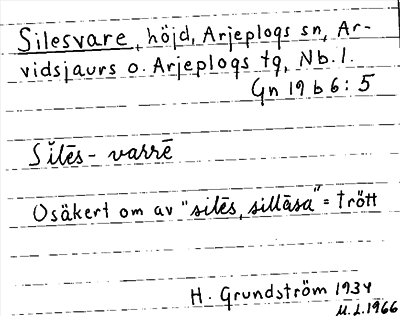 Silesvare, höjd, Arjeplogs sn, Ar-
vidsjaurs o. Arjeplogs tg, Nb. l.
Gn 19 b 6:5
Silēs- varrē
Osäkert om av "silēs, sillāsa" = trött
H. Grundström 1934
M.L.1966